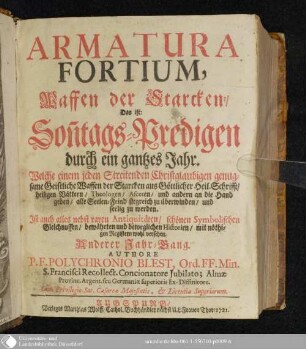 ARMATURA
FORTIUM,
Waffen der Starcken/
Das ist:
Soñtags-Predigen
durch ein gantzes Jahr.
Welche einem jeden Streitenden Christglaubigen genug-
same Geistliche Waffen der Starcken aus Göttlicher Heil. Schrifft/
heiligen Vättern/ Theologen/ und andern an die Hand
geben/ alle Seelen-Feind siegreich zu überwinden/ und
seelig zu werden.
Ist auch alles nebst raren Antiquitäten/ schönen Symbolischen
Gleichnussen/ bewährten und Historien/ mit nöthi-
gen Registern wohl versehen.
Anderer Jahr-Gang.
AUTHORE
P. F. POLYCHRONIO BLEST, Ord. FF. Min.
S. Francisci Recollect. Concionatore Jubilato; Almæ
Provinc. Argent. sup. Germaniæ Superioris Ex-Diffinitore.
Cum Privilegio Sac. Cæsareæ Majestatis, & Licentia Superiorum.
AUGSPURG/